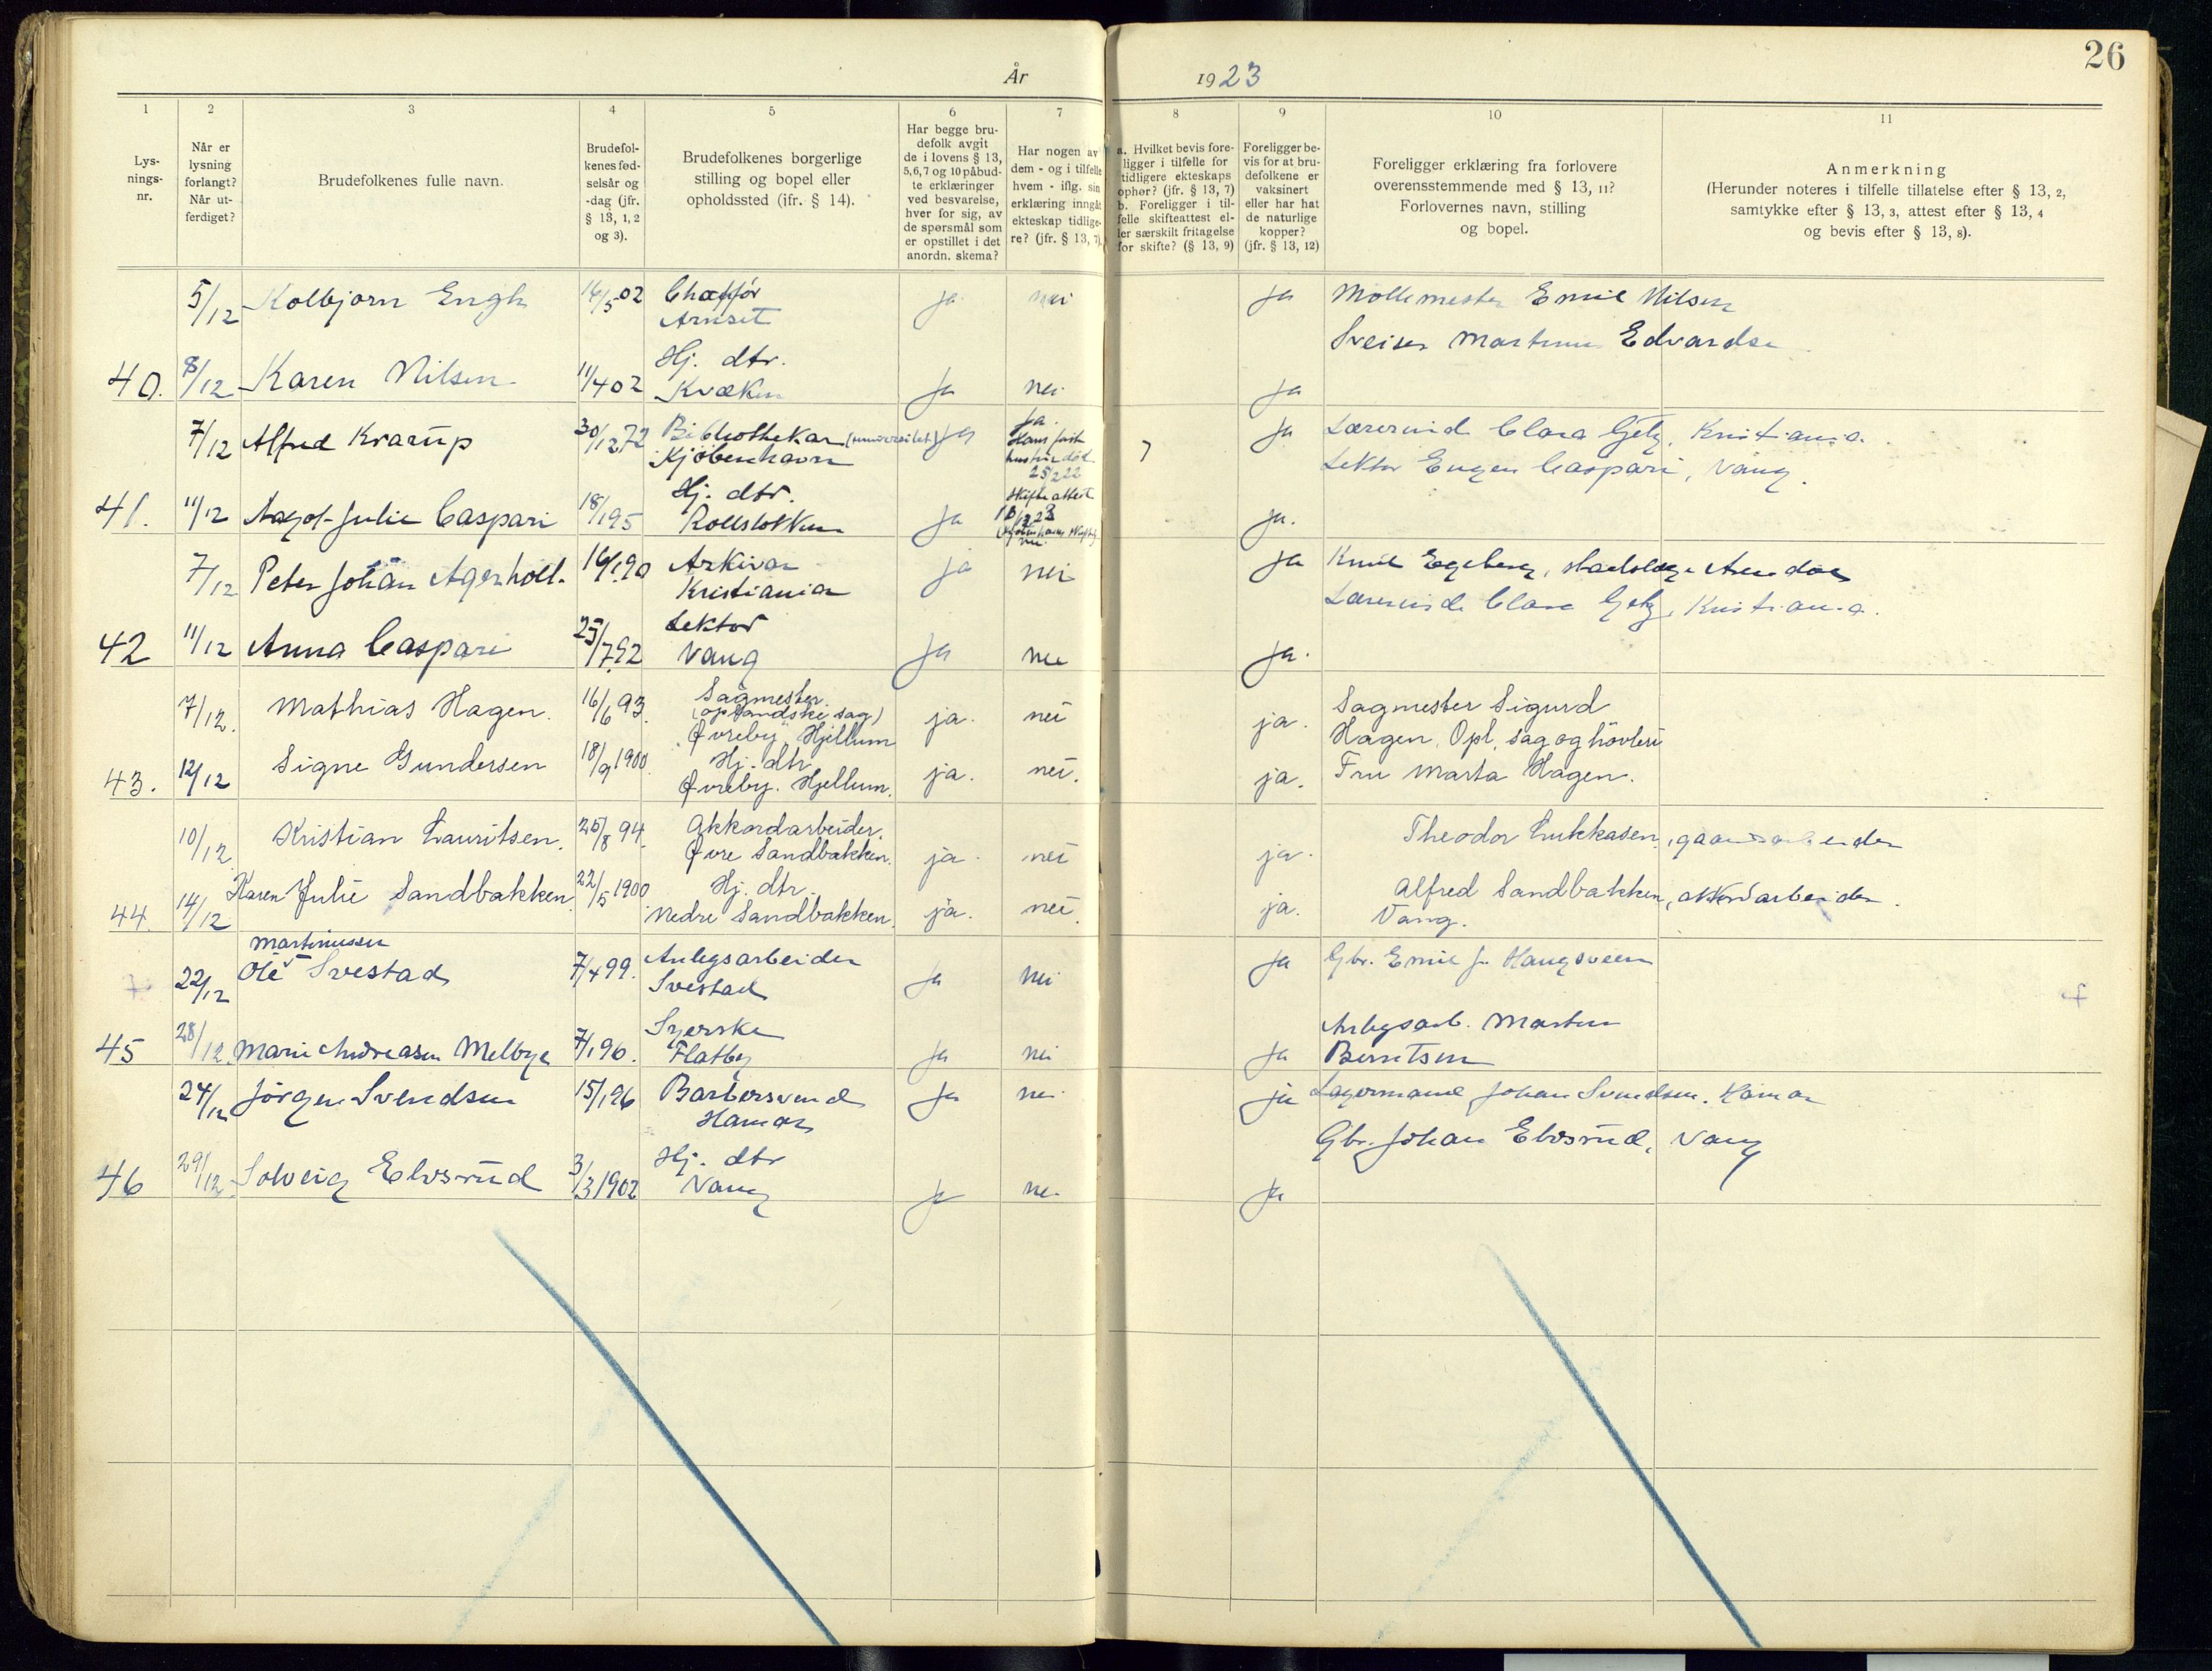 26
År 1923
1 2 3 4 5 6 7 8 9 10 11
Lys-
nings-
nr.
Når er
lysning
forlangt?
Når ut-
ferdiget?
Brudefolkenes fulle navn.
Brudefol-
kenes fød-
selsår og
-dag (jfr.
§ 13, 1, 2
og 3).
Brudefolkenes borgerlige
stilling og bopel eller
opholdssted (jfr. § 14).
Har begge bru-
defolk avgit
de i lovens § 13,
5,6,7 og 10 påbud-
te erklæringer
ved besvarelse,
hver for sig, av
de spørsmål som
er opstillet i det
anordn. skema?
Har nogen av
dem - og i tilfelle
hvem - iflg. sin
erklæring inngåt
ekteskap tidlige-
re? (jfr. § 13, 7).
a. Hvilket bevis fore-
ligger i tilfelle for
tidligere ekteskaps
ophør? (jfr. § 13, 7)
b. Foreligger i til-
felle skifteattest el-
ler særskilt fritagelse
for skifte? (§ 13, 9)
Foreligger be-
vis for at bru-
defolkene er
vaksinert
eller har hat
de naturlige
kopper?
(jfr. § 13, 12)
Foreligger erklæring fra forlovere
overensstemmende med § 13, 11?
Forlovernes navn, stilling
og bopel.
Anmerkning
(Herunder noteres i tilfelle tillatelse efter § 13, 2,
samtykke efter § 13, 3, attest efter § 13, 4
og bevis efter § 13, 8).
5/12 Kolbjørn Engh 16/5 02 Chaffør ja nei ja Møllemester Emil Nilsen
Arnset
Sveiser Martinus Edvardsen
Hj. dtr.
40. 8/12 Karen Nilsen 11/4 02 Kvæken ja nei ja
7/12 Alfred Krarup 30/12 72 Bibliothekar (universitet) ja ja. ja Lærerinde Clara Getz, Kristiania.
Kjøbenhavn
hustru død
Lektor Eugen Caspari, Vang.
Hj. dtr.
Skifteattest
41. 11/12 Aagot Julie Caspari 18/1 95 Rollsløkken ja nei ja.
7/12 Peter Johan Agerholt 16/1 90 Arkivar ja nei ja Knut Egeberg, Arendal
Kristiania
Lærerinde Clara Getz, Kristiania.
Lektor
42 11/12 Anna Caspari 25/7 92 Vang ja nei ja.
7/12. Mathias Hagen. 16/6 93. Sagmester ja. nei ja. Sagmester Sigurd
(oplandske sag)
Øvreby Hjellum
Hagen, Opl. sag og høvleri
43. 12/12 Signe Gundersen 18/9 1900. Hj. dtr. ja. nei. ja. Fru Marta Hagen.
Øvreby. Hjellum.
10/12 Kristian Lauritsen. 25/8 94. Akkordarbeider. ja. nei ja. Theodor Lukkasen, gaardsarbeider
Øvre Sandbakken.
44. 14/12 Karen Julie Sandbakken. 22/5 1900 Hj. dtr. ja. nei. ja. Alfred Sandbakken, akkordarbeider.
Nedre Sandbakken.
Vang.
Martinussen
22/12 Ole Svestad 7/4 99. Anlegsarbeider ja nei ja Gbr. Emil J. Haugsveen
Svestad
Syerske
Anlegsarb. Martin
45 28/12 Marie Andreasen Melbye 7/1 96. Flatby ja nei ja Berntsen
24/12 Jørgen Svendsen 15/1 96 Barbersvend ja nei ja Lagermand Johan Svendsen. Hamar
Hamar
Gbr. Johan Elvsrud, Vang
Hj. dtr
46 29/12 Solveig Elvsrud 3/3 1902 Vang ja nei ja